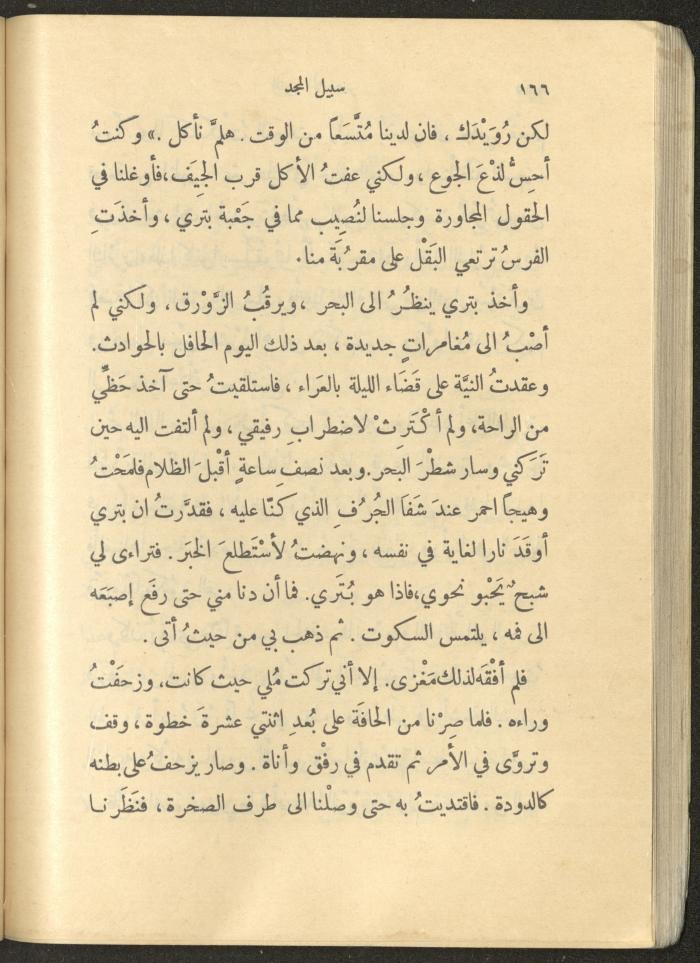 ١٦٦
سبيل المجد
لكن رُوَيْدَك ، فان لدينا مُتَّسَعاً من الوقت . هلمَّ نأكل .» وكنتُ
أحِسُّ لذْعَ الجوع ، ولكني عفتُ الأكل قرب الجِيَف،فأوغلنا في
الحقول المجاورة وجلسنا لنُصِيب مما في جَعْبة بتري ، وأخذَتِ
الفرسُ ترتعي البَقْل على مقرُبَة منا .
وأخذ بتري ينظُرُ الى البحر ،ويرقُبُ الزَّوْرق ، ولكني لم
أصْبُ الى مُغامراتٍ جديدة ، بعد ذلك اليوم الحافل بالحوادث.
وعقدتُ النيَّة على قَضَاء الليلة بالعَراء ، فاستلقيتُ حتى آخذ حَظِّي
من الراحة، ولم أكْتَرِثْ لاضطرابِ رفيقي ، ولم ألتفت اليه حين
تَرَكني وسار شطْرَ البحر.وبعد نصفِ ساعةٍ أقْبلَ الظلام فلمَحْتُ
وهيجاً احمر عندَ شَفَا الجُرُفِ الذي كنّا عليه ، فقدَّرتُ ان بتري
أوقَدَ نارا لغاية في نفسه ، ونهضتُ لأسْتَطلعَ الخبَر . فتراءى لي
شبحٌ يَحْبو نحوي،فاذا هو بُتَري. فما أن دنا مني حتى رفَع إصبَعَه
الى فمه ، يلتمس السكوت . ثم ذهب بي من حيثُ أتى .
فلم أفْقَه لذلك مَغْزى. إلا أني تركت مُلي حيث كانت، وزحَفْتُ
وراءه . فلما صِرْنا من الحافَة على بُعدِ اثنتي عشرةَ خطوة ، وقف
وتروَّى في الأمر ثم تقدم في رفْق وأناة . وصار يزحفُ على بطنه
كالدودة . فاقتديتُ به حتى وصلْنا الى طرف الصخرة ، فنَظَرنا